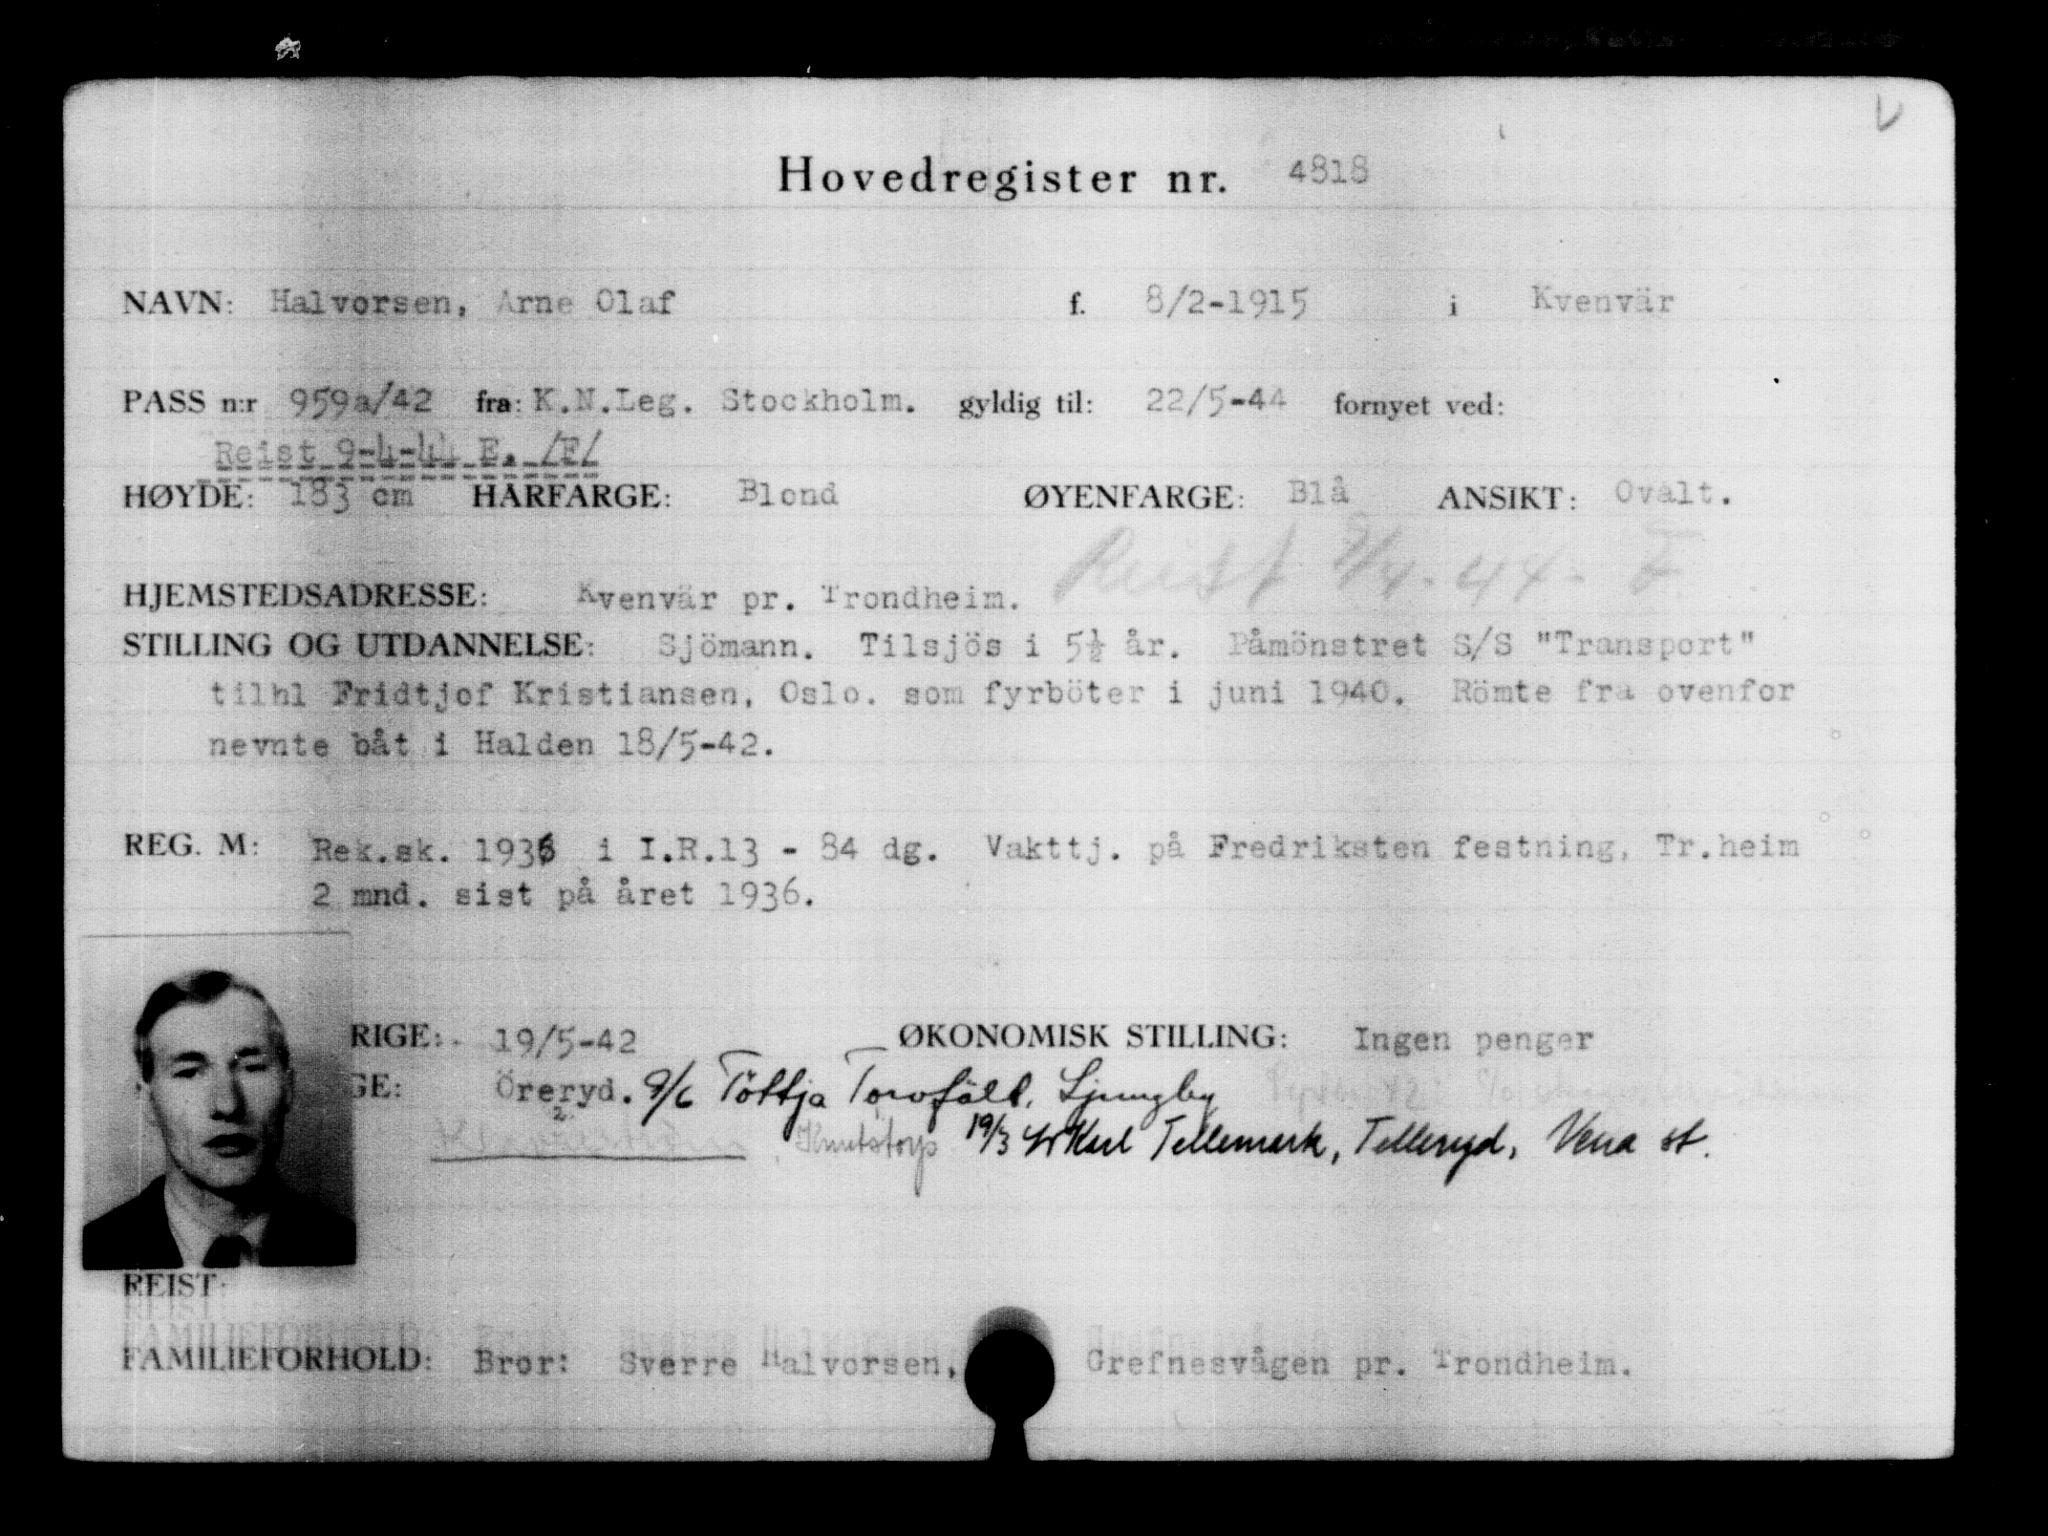 Hovedregister nr. 4818
NAVN: Halvorsen, Arne Olaf f. 8/2-1915 i Kvenvär
PASS n:r 959a/42 fra: K.N.Leg. Stockholm. gyldig til: 22/5-44 fornyet ved:
Reist 9-4-44 E. /F/
HØYDE: 183 cm HÅRFARGE: Blond ØYENFARGE: Blå ANSIKT: Ovalt.
Reist 9/4-44- F
HJEMSTEDSADRESSE: Kvenvär pr. Trondheim.
STILLING OG UTDANNELSE: Sjömann. Tilsjös i 5½ år. Påmönstret S/S "Transport"
tilhl Fridtjof Kristiansen, Oslo. som fyrböter i juni 1940. Römte fra ovenfor
nevnte båt i Halden 18/5-42.
REG. M: Rek.sk. 1936 i I.R.13 - 84 dg. Vakttj. på Fredriksten festning, Tr.heim
2 mnd. sist på året 1936.
RIGE: 19/5-42 ØKONOMISK STILLING: Ingen penger
GE: Öreryd. 9/6 Töttja Torvfält, Ljungby
Knutstorp 19/3 Karl Tellemark, Telleryd, Vena st.
REIST:
FAMILIEFORHOLD: Bror: Sverre Halvorsen, Grefnesvågen pr. Trondheim.